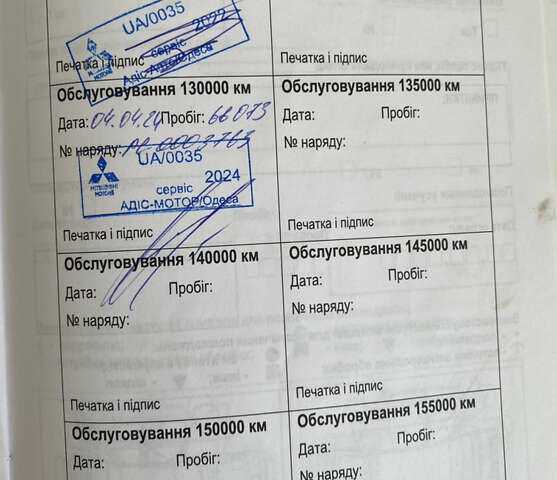 UA/0035
2022
сервіс
Адіс-Авто/Одеса
Печатка і підпис
Печатка і підпис
Обслуговування 130000 км
Дата: 04.04.24 Пробіг: 66073
№ наряду:
UA/0035
2024
MITSUBISHI
MOTORS
сервіс
АДІС-МОТОР/Одеса
Печатка і підпис
Обслуговування 135000 км
Дата: Пробіг:
№ наряду:
Печатка і підпис
Обслуговування 140000 км
Дата: Пробіг:
№ наряду:
Печатка і підпис
Обслуговування 145000 км
Дата: Пробіг:
№ наряду:
Печатка і підпис
Обслуговування 150000 км
Дата: Пробіг:
Обслуговування 155000 км
Дата: Пробіг:
№ наряду: